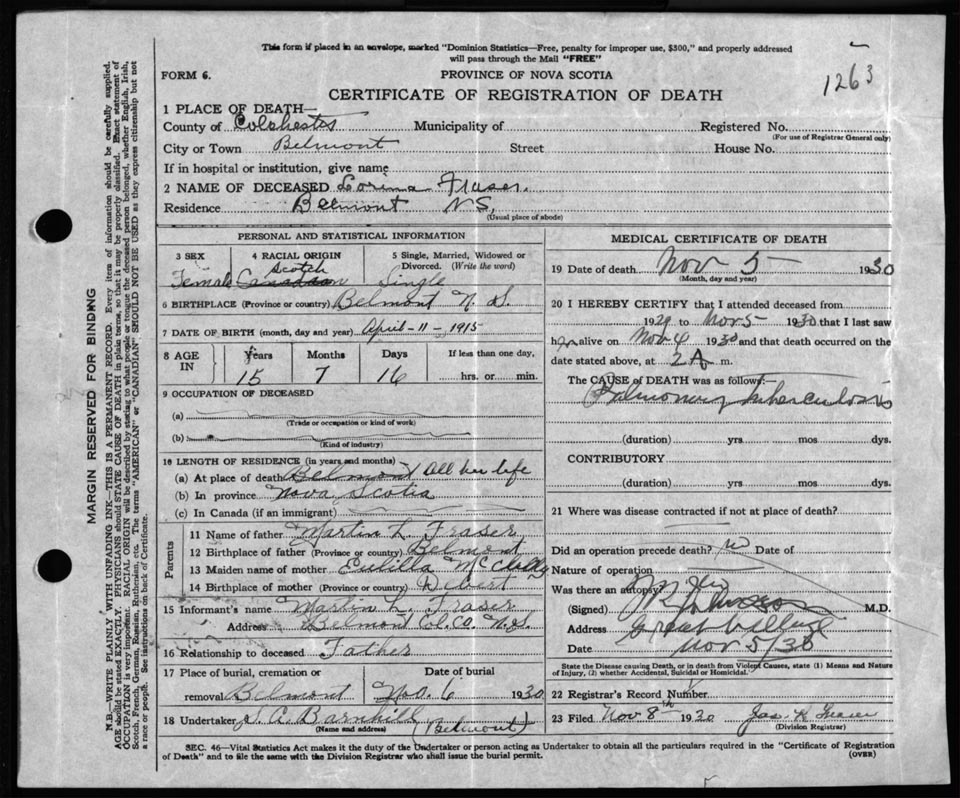 This form if placed in an envelope, marked "Dominion Statistics—Free, penalty for improper use, $300," and properly addressed
will pass through the Mail "FREE"
FORM 6.
PROVINCE OF NOVA SCOTIA
1263
CERTIFICATE OF REGISTRATION OF DEATH
1 PLACE OF DEATH—
County of Colchester Municipality of Registered No.
(For use of Registrar General only)
City or Town Belmont Street House No.
If in hospital or institution, give name
2 NAME OF DECEASED Lorima Fraser.
Residence Belmont N S,
(Usual place of abode)
PERSONAL AND STATISTICAL INFORMATION
3 SEX 4 RACIAL ORIGIN 5 Single, Married, Widowed or
Divorced. (Write the word)
Scotch
Female Canadian Single
6 BIRTHPLACE (Province or country) Belmont N. S.
7 DATE OF BIRTH (month, day and year) April-11-1915
8 AGE IN Years Months Days If less than one day,
15 7 16 hrs. or min.
9 OCCUPATION OF DECEASED
(a)
(Trade or occupation or kind of work)
(b)
(Kind of industry)
10 LENGTH OF RESIDENCE (in years and months)
(a) At place of death Belmont All her life
(b) In province Nova Scotia
(c) In Canada (if an immigrant)
Parents
11 Name of father Martin L. Fraser
12 Birthplace of father (Province or country) Belmont
13 Maiden name of mother Eulilla
14 Birthplace of mother (Province or country) Debert
15 Informant's name Martin L. Fraser
Address Belmont Col. Co. N.S.
16 Relationship to deceased Father
17 Place of burial, cremation or Date of burial
removal Belmont Nov. 6 1930
18 Undertaker J. A. Barnhill (Belmont)
(Name and address)
MEDICAL CERTIFICATE OF DEATH
19 Date of death Nov 5 1930
(Month, day and year)
20 I HEREBY CERTIFY that I attended deceased from
1929 to Nov 5 1930 that I last saw
her alive on Nov 4 1930 and that death occurred on the
date stated above, at 2 A m.
The CAUSE of DEATH was as follows:
Pulmonary tuberculosis
(duration) yrs mos dys.
CONTRIBUTORY
(duration) yrs mos dys.
21 Where was disease contracted if not at place of death?
Did an operation precede death? no Date of
Nature of operation
Was there an autopsy?
(Signed) Johnson M.D.
Address Great Village
Date Nov 5/30
State the Disease causing Death, or in death from Violent Causes, state (1) Means and Nature
of Injury, (2) whether Accidental, Suicidal or Homicidal.
22 Registrar's Record Number
23 Filed Nov 8th 1930 Jas. K Fraser
(Division Registrar)
SEC. 46—Vital Statistics Act makes it the duty of the Undertaker or person acting as Undertaker to obtain all the particulars required in the "Certificate of Registration
of Death" and to file the same with the Division Registrar who shall issue the burial permit.
(OVER)
MARGIN RESERVED FOR BINDING
N.B.—WRITE PLAINLY WITH UNFADING INK—THIS IS A PERMANENT RECORD. Every item of information should be carefully supplied.
AGE should be stated EXACTLY. PHYSICIANS should STATE CAUSE OF DEATH in plain terms, so that it may be properly classified. Exact statement of
OCCUPATION is very important. RACIAL ORIGIN will be described by stating to what people or tongue the deceased person belonged, whether English, Irish,
Scotch, French, German, Russian, Ruthenian, etc. The terms "AMERICAN" or "CANADIAN" SHOULD NOT BE USED as they express citizenship but not
a race or people. See instructions on back of Certificate.